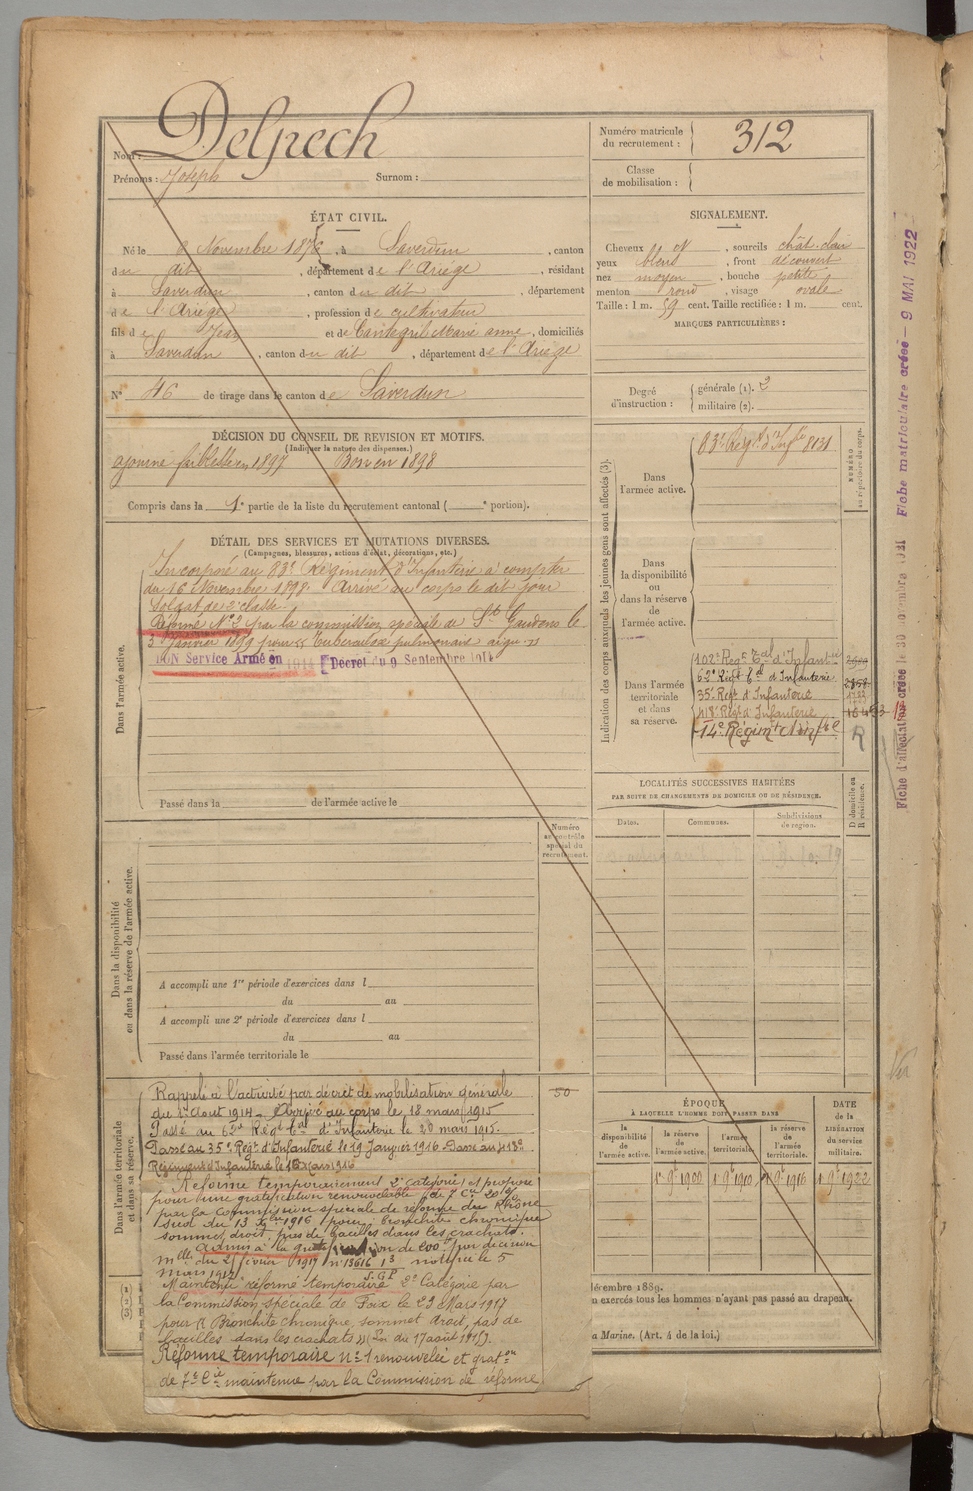 Nom : Delpech
Prénoms : Joseph Surnom :
Numéro matricule du recrutement : 312
Classe de mobilisation :
ÉTAT CIVIL.
Né le 9 Novembre 1876, à Saverdun, canton
du dit, département de l'Ariège, résidant
à Saverdun, canton du dit, département
de l'Ariège, profession de cultivateur
fils de Jean et de Cantegril Marie anne, domiciliés
à Saverdun, canton du dit, département de l'Ariège
N° 46 de tirage dans le canton de Saverdun
SIGNALEMENT.
Cheveux N, sourcils chât. clair
yeux bleus, front découvert
nez moyen, bouche petite
menton rond, visage ovale
Taille : 1 m. 59 cent. Taille rectifiée : 1 m. cent.
MARQUES PARTICULIÈRES :
Degré d'instruction : générale (1). 2
militaire (2).
DÉCISION DU CONSEIL DE REVISION ET MOTIFS.
(Indiquer la nature des dispenses.)
ajourné faiblesse en 1897 Bon en 1898
Compris dans la 1e partie de la liste du recrutement cantonal ( e portion).
DÉTAIL DES SERVICES ET MUTATIONS DIVERSES.
(Campagnes, blessures, actions d'éclat, décorations, etc.)
Dans l'armée active.
Incorporé au 83e Régiment d'Infanterie à compter
du 16 Novembre 1898. Arrivé au corps le dit jour
Soldat de 2e classe.
Réformé N°2 par la commission spéciale de St Gaudens le
3 Janvier 1899 pour "Tuberculose pulmonaire aigue"
BON Service Armé en 1914 Décret du 9 Septembre 1914
Passé dans la de l'armée active le
Indication des corps auxquels les jeunes gens sont affectés (3).
NUMÉRO au répertoire du corps.
Dans l'armée active. 83e Régt d'Infie 8131
Dans la disponibilité ou dans la réserve de l'armée active.
Dans l'armée territoriale et dans sa réserve.
102e Régt Tal d'Infanterie
62e Régt Tal d'Infanterie
35e Régt d'Infanterie
418e Régt d'Infanterie
14e Régimt d'Infie R
Fiche d'affectation créée le 30 novembre 1921 Fiche matriculaire créée - 9 MAI 1922
LOCALITÉS SUCCESSIVES HABITÉES
PAR SUITE DE CHANGEMENTS DE DOMICILE OU DE RÉSIDENCE.
Dates. Communes. Subdivisions de région. D domicile ou R résidence.
Numéro au contrôle spécial du recrutement.
Dans la disponibilité ou dans la réserve de l'armée active.
A accompli une 1re période d'exercices dans l
du au
A accompli une 2e période d'exercices dans l
du au
Passé dans l'armée territoriale le
Dans l'armée territoriale et dans sa réserve.
Rappelé à l'activité par décret de mobilisation générale 50
du 1er Aout 1914 - Arrivé au corps le 18 mars 1915
Passé au 62e Régt Tal d'Infanterie le 20 mars 1915.
Passé au 35e Régt d'Infanterie le 19 Janvier 1916 Passé au 418e
Régiment d'Infanterie le 16 Mars 1916
Réformé temporairement 2e catégorie et proposé
pour une gratification renouvelable de 7e cie 20%
par la commission spéciale de réforme du Rhône
sud du 13 Xbre 1916 pour bronchite chronique
sommet droit, pas de bacilles dans les crachats.
Admis à la gratification de 200 par décision
mlle du 21 février 1917 n° 13616 13 notifiée le 5
mars 1917 S.G.P.
Maintenu réformé temporaire 2e Catégorie par
la Commission spéciale de Foix le 23 Mars 1917
pour "Bronchite chronique, sommet droit, pas de
bacilles dans les crachats" (Loi du 17 août 1915).
Réforme temporaire n°1 renouvelée et graton
de 7e Cie maintenue par la Commission de réforme
ÉPOQUE
À LAQUELLE L'HOMME DOIT PASSER DANS
la disponibilité de l'armée active. la réserve de l'armée active. l'armée territoriale. la réserve de l'armée territoriale. DATE de la LIBÉRATION du service militaire.
1er 9e 1900 1er 9e 1910 1er 9e 1916 1er 9e 1922
décembre 1889.
n exercés tous les hommes n'ayant pas passé au drapeau.
a Marine. (Art. 4 de la loi.)
(1)
(2)
(3)